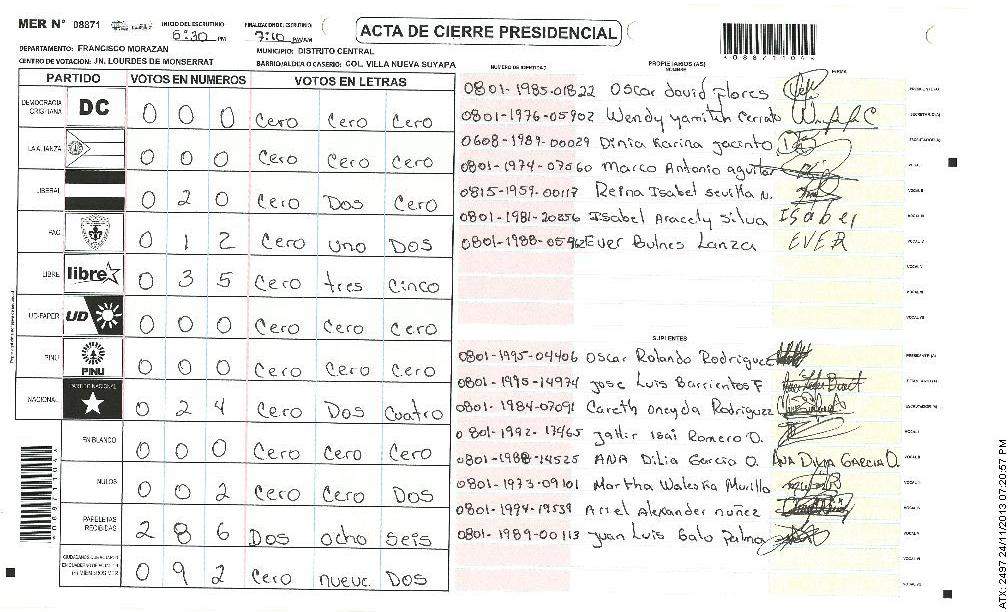 MER N° 08871
INICIO DEL ESCRUTINIO
6:30 PM
FINALIZACION DEL ESCRUTINIO:
7:10
ACTA DE CIERRE PRESIDENCIAL
DEPARTAMENTO: FRANCISCO MORAZAN
MUNICIPIO: DISTRITO CENTRAL
CENTRO DE VOTACION: JN. LOURDES DE MONSERRAT
BARRIO/ALDEA O CASERIO: COL. VILLA NUEVA SUYAPA
PARTIDO VOTOS EN NUMEROS VOTOS EN LETRAS
DEMOCRACIA CRISTIANA DC 0 0 0 Cero Cero Cero
LA ALIANZA 0 0 0 Cero Cero Cero
LIBERAL 0 2 0 Cero Dos Cero
PAC 0 1 2 Cero uno Dos
LIBRE libre 0 3 5 Cero tres Cinco
UD-FAPER UD 0 0 0 Cero Cero Cero
PINU PINU 0 0 0 Cero Cero Cero
NACIONAL PARTIDO NACIONAL 0 2 4 Cero Dos Cuatro
EN BLANCO 0 0 0 Cero Cero Cero
NULOS 0 0 2 Cero Cero Dos
PAPELETAS RECIBIDAS 2 8 6 Dos ocho seis
0 9 2 Cero nueve Dos
NUMERO DE IDENTIDAD PROPIETARIOS (AS) NOMBRE FIRMA
0801-1985-01822 Oscar david flores
0801-1976-05902 Wendy yamileth Cerrato
0608-1989-00029 Dinia Karina jacinto
0801-1974-07560 Marco Antonio aguilar
0815-1959-00117 Reina Isabel sevilla N.
0801-1981-20856 Isabel Aracely Silva Isabel
0801-1988-05962 Ever Bulnes Lanza EVER
SUPLENTES
0801-1995-04406 Oscar Rolando Rodriguez
0801-1995-14974 jose Luis Barrientos F
0801-1984-07091 Careth oneyda Rodriguez
0801-1992-17465 jattir Isai Romero O.
0801-1988-14525 ANA Dilia Garcia O. ANA DILIA GARCIA O.
0801-1973-09101 Martha Waleska Murillo
0801-1994-19539 Ariel Alexander nuñez
0801-1989-00113 juan Luis Galo Palma
ATX: 2497 24/11/2013 07:20:57 PM